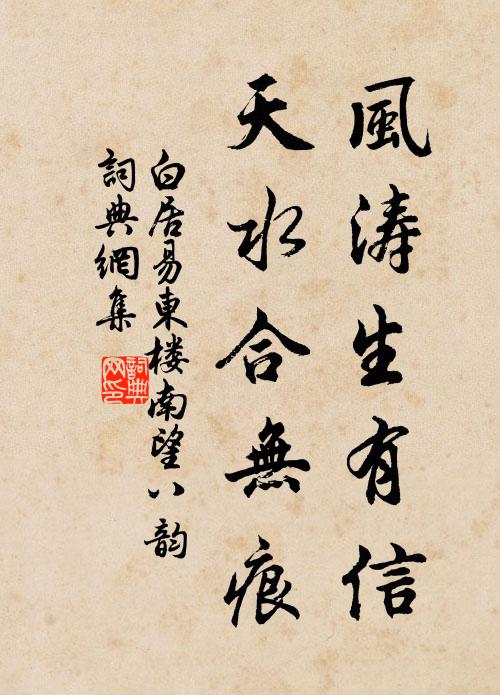 風涛生有信
天水合無痕
白居易東楼南望八韵
詞典網集
詞典网印